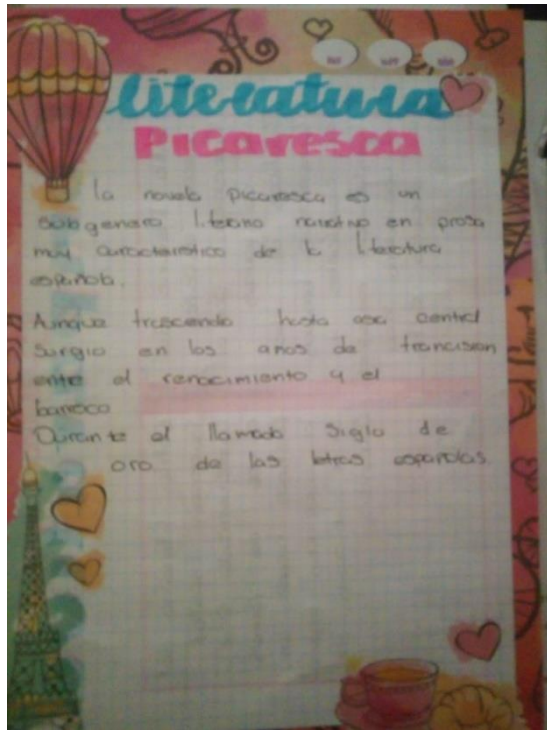 Literatura
Picaresca
la novela picaresca es un
subgenero literario narrativo en prosa
muy caracteristico de la literatura
española.
Aunque trasciende hasta
Surgio en los años de trancision
ente el renacimiento y el
barroco
Durante el llamado Siglo de
oro de las letras españolas